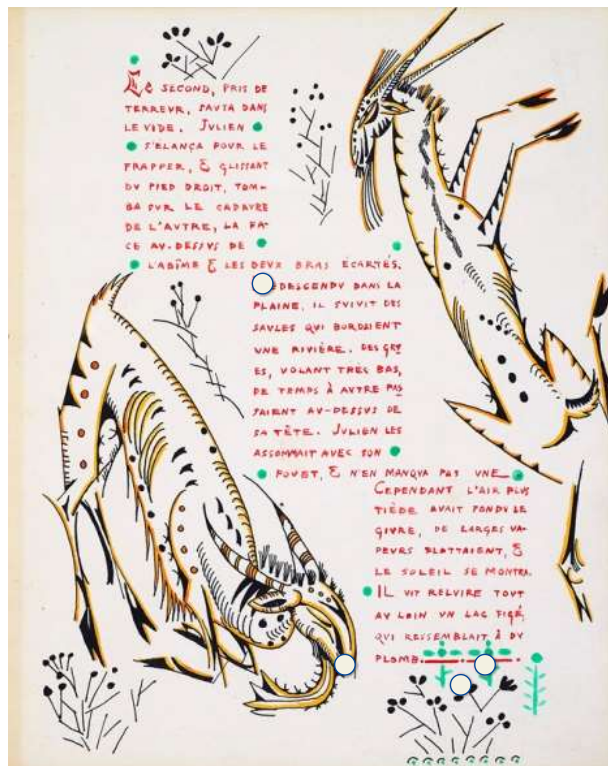 LE SECOND, PRIS DE
TERREVR, SAVTA DANS
LE VIDE. JVLIEN
S'ÉLANÇA POVR LE
FRAPPER, & GLISSANT
DV PIED DROIT, TOM-
BA SVR LE CADAVRE
DE L'AVTRE, LA FA-
CE AV-DESSVS DE
L'ABÎME & LES DEVX BRAS ÉCARTÉS.
DESCENDV DANS LA
PLAINE, IL SVIVIT DES
SAVLES QVI BORDAIENT
VNE RIVIÈRE. DES GRV
ES, VOLANT TRÈS BAS,
DE TEMPS À AVTRE PAS
SAIENT AV-DESSVS DE
SA TÊTE. JVLIEN LES
ASSOMMAIT AVEC SON
FOVET, & N'EN MANQVA PAS VNE
CEPENDANT L'AIR PLVS
TIÈDE AVAIT FONDV LE
GIVRE, DE LARGES VA-
PEVRS FLOTTAIENT, &
LE SOLEIL SE MONTRA.
IL VIT RELVIRE TOVT
AV LOIN VN LAC FIGÉ,
QVI RESSEMBLAIT À DV
PLOMB.